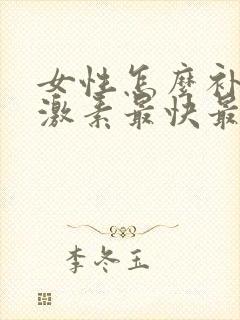 女性怎麽补
激素最快最
李冬玉